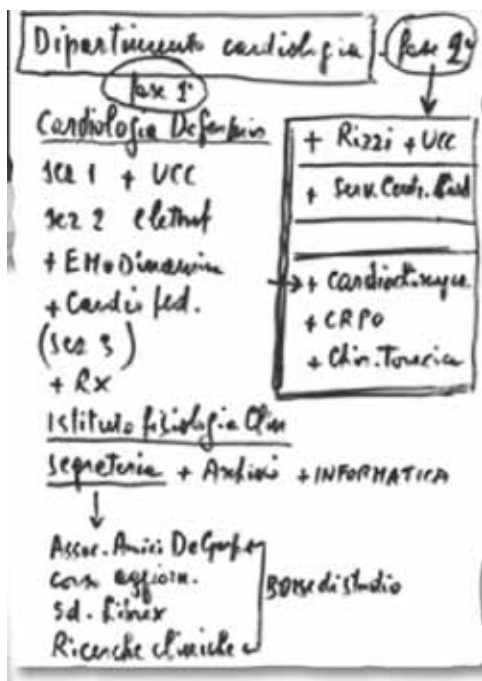 Dipartimento cardiologia
fase 2ª
fase 1ª
Cardiologia De Gasperis
sez 1 + UCC
sez 2 Elettrof
+ EMODinamica
+ Cardio ped.
(sez 3)
+ Rx
Istituto fisiologia Clin
segreteria + Archivio + INFORMATICA
Assoc. Amici De Gasper
corsi aggiorn.
Sd.
Ricerche cliniche
BORSE di studio
+ Rizzi + UCC
+ Serv. Centr. Card
+ Cardiochirurgia
+ CRPO
+ Chir. Toracica